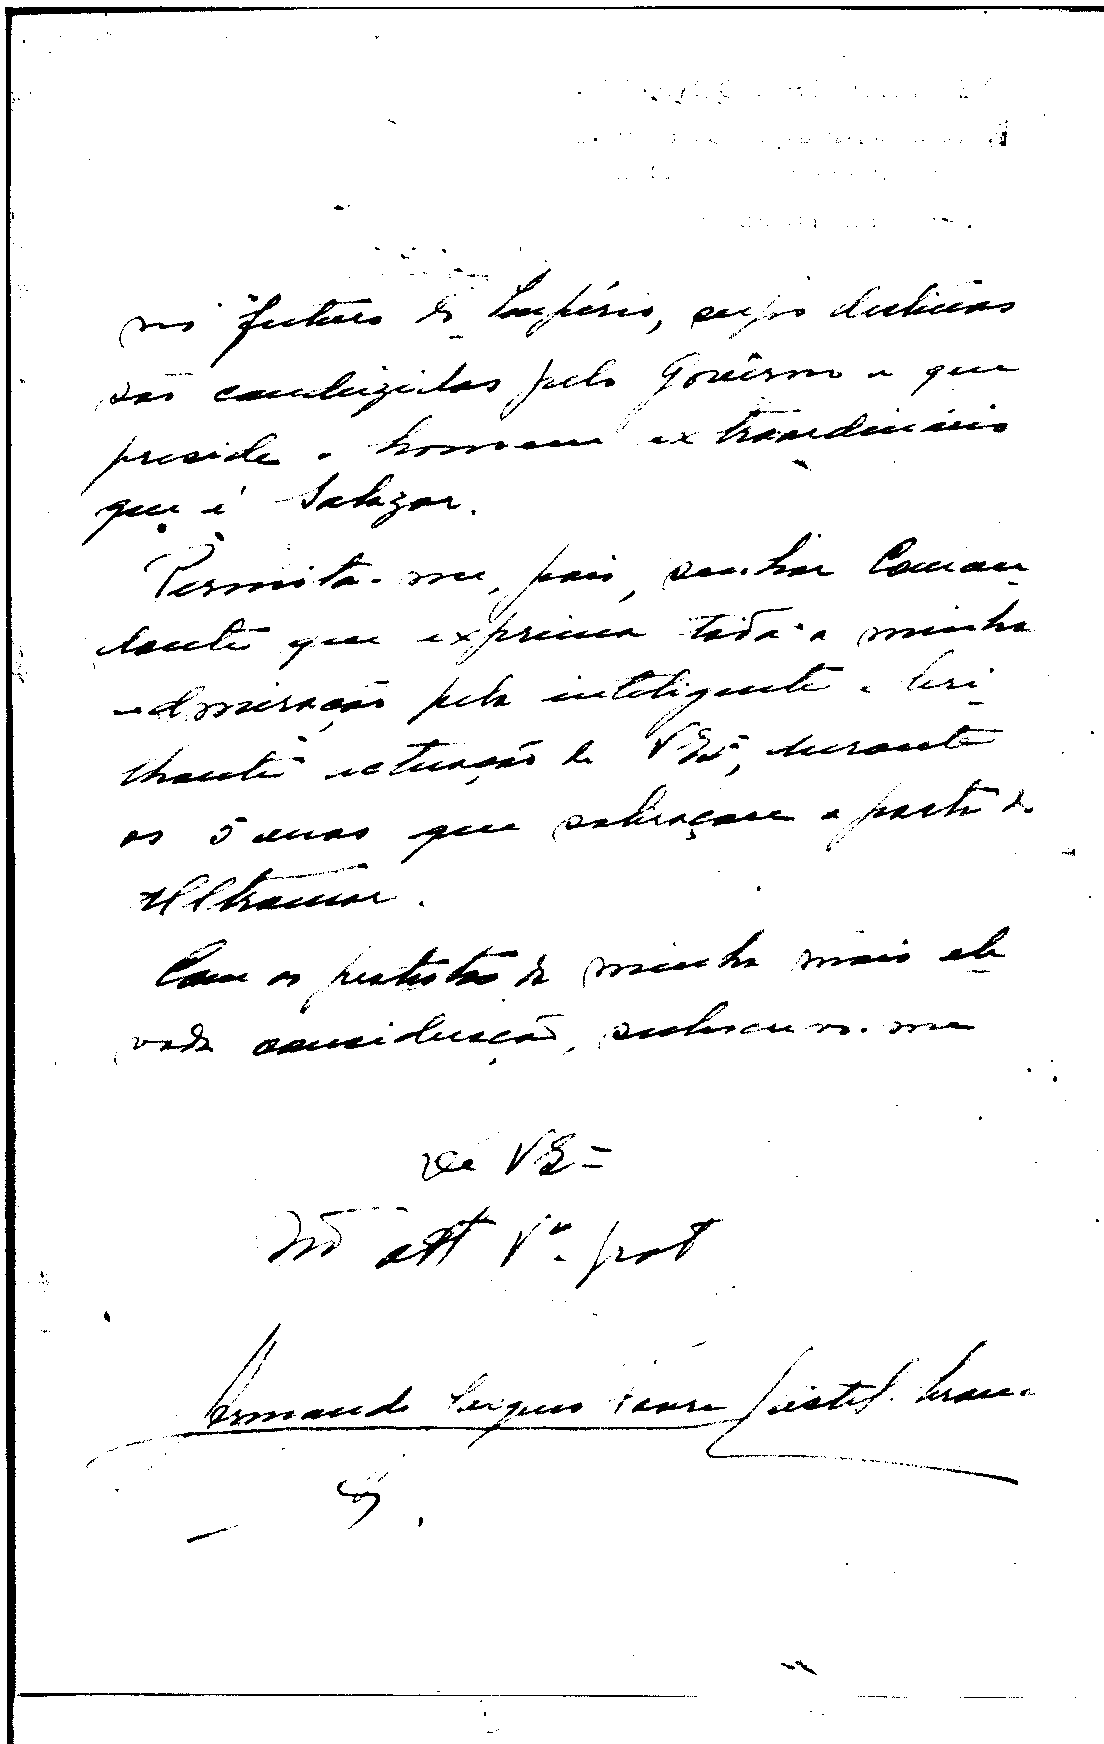 no futuro do Império, cujos destinos
são conduzidos pelo Govêrno a que
preside o homem extraordinário
que é Salazar.
Permita-me, pois, senhor Coman-
dante que exprima toda a minha
admiração pela inteligente e bri-
lhante actuação de V Exª, durante
os 5 anos que sobraçou a pasta do
Ultramar.
Com os protestos da minha mais ele
vada consideração, subscrevo-me
De V E
att
Armando